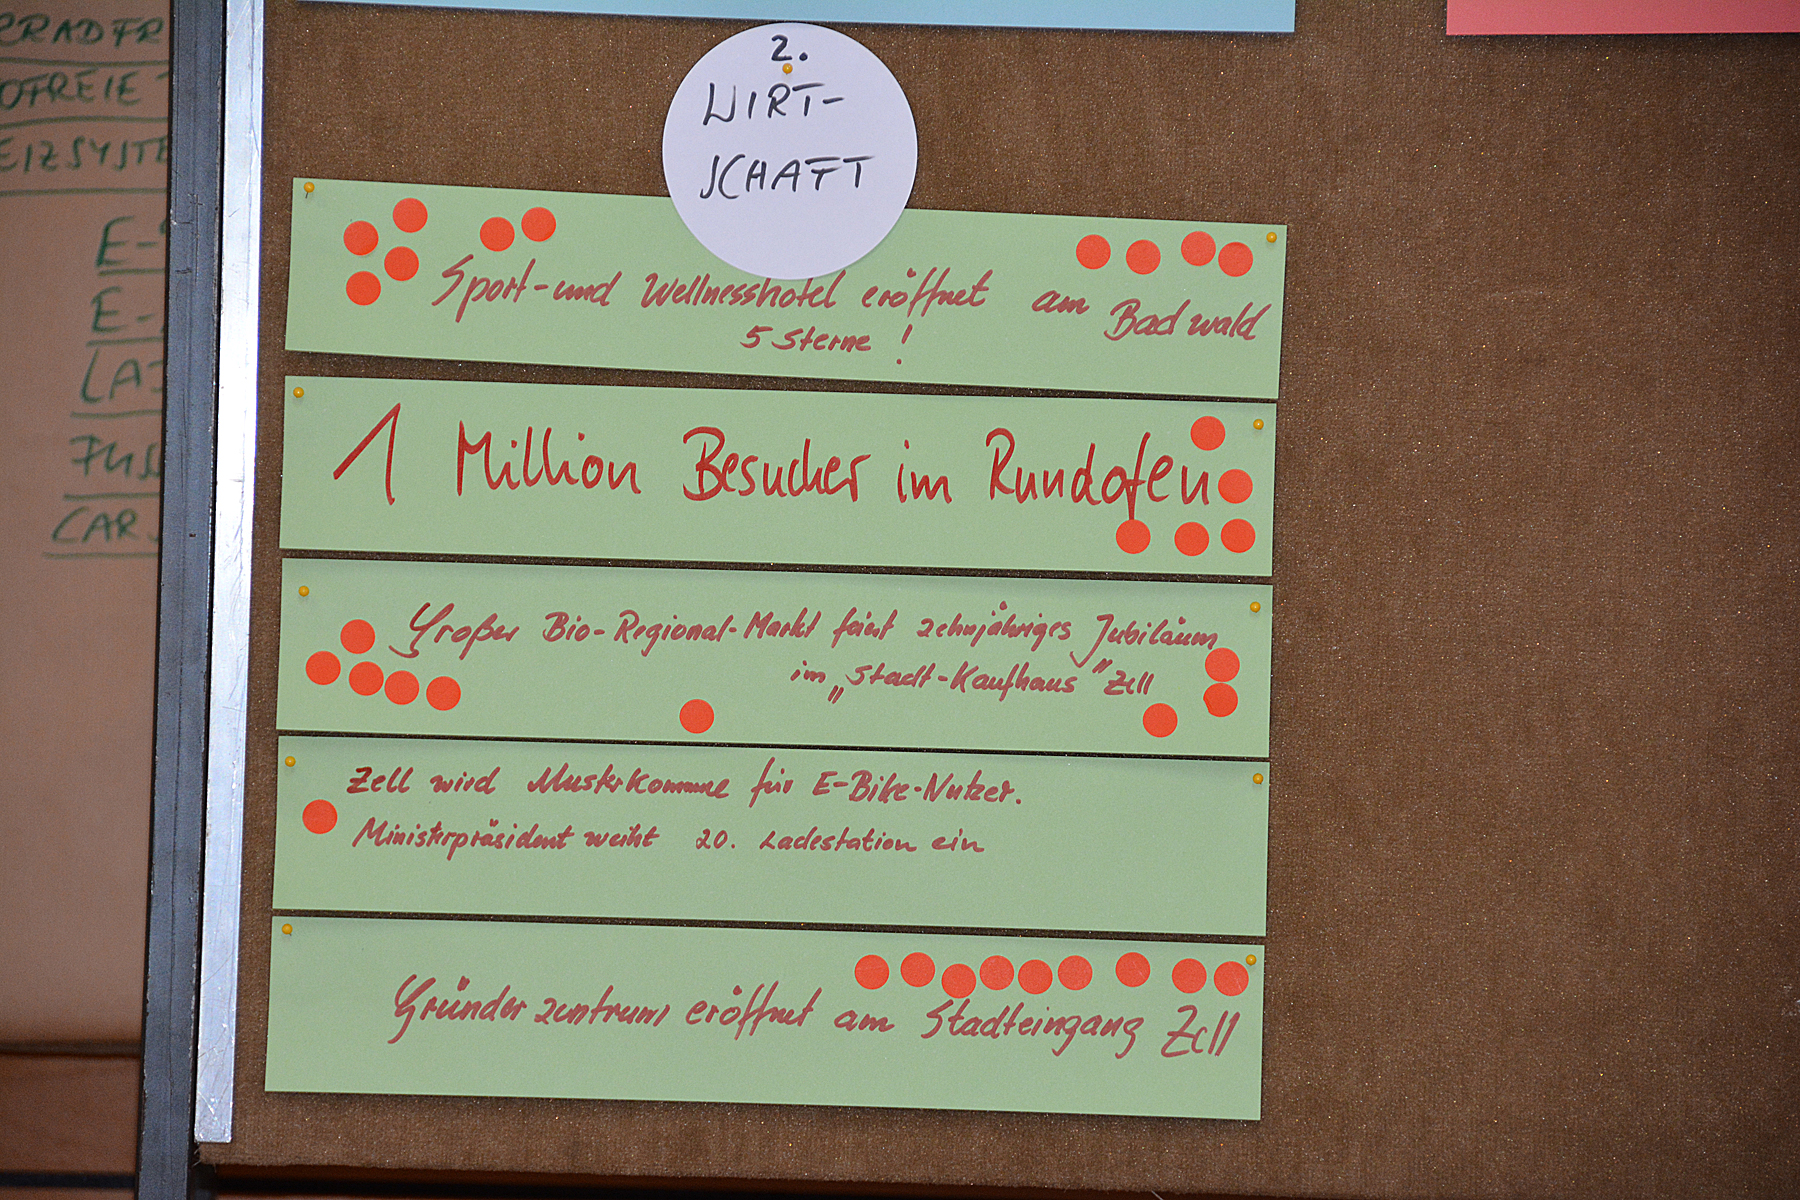 2.
WIRT-
SCHAFT
Sport-und Wellnesshotel eröffnet am Badwald
5 Sterne !
1 Million Besucher im Rundofen
Großer Bio-Regional-Markt feiert zehnjähriges Jubiläum
im „Stadt-Kaufhaus" Zell
Zell wird Musterkommune für E-Bike-Nutzer.
Ministerpräsident weiht 20. Ladestation ein
Gründerzentrum eröffnet am Stadteingang Zell
ERRADFR
OFREIE
EIZSYSTE
E-
E-
LA
CAR